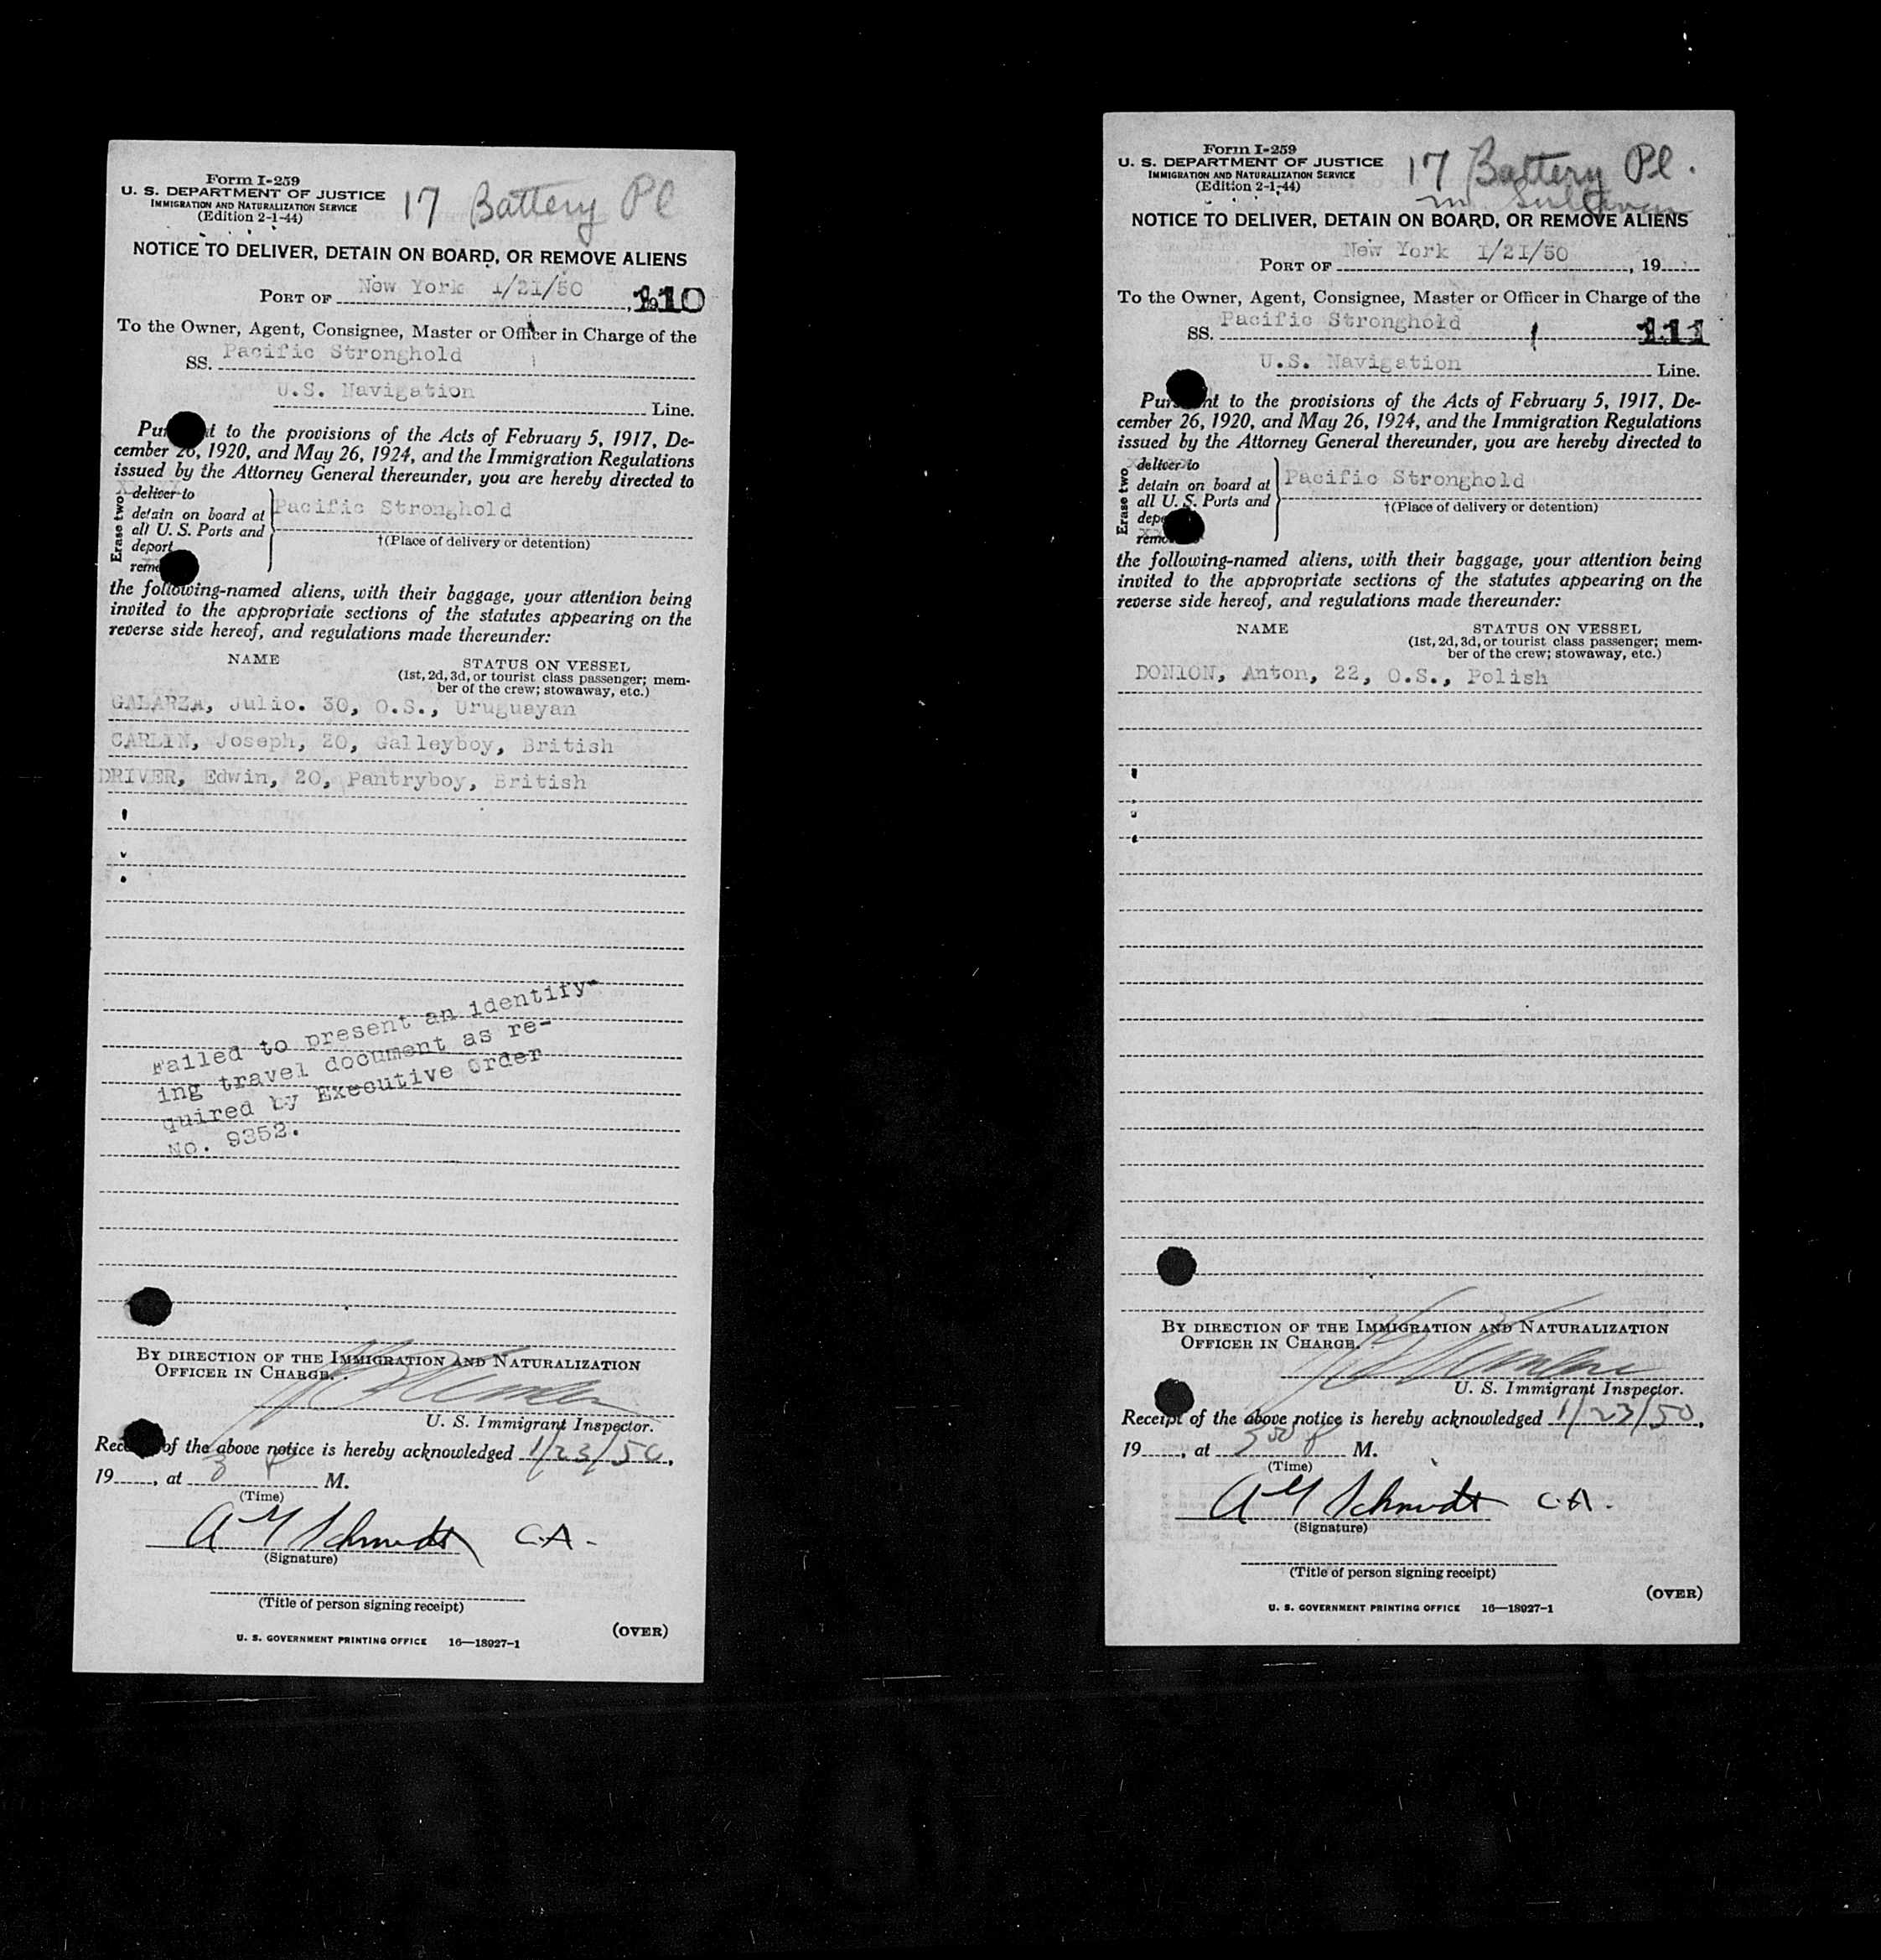 Form I-259
U. S. DEPARTMENT OF JUSTICE
IMMIGRATION AND NATURALIZATION SERVICE
(Edition 2-1-44)
17 Battery Pl
NOTICE TO DELIVER, DETAIN ON BOARD, OR REMOVE ALIENS
PORT OF New York 1/21/50, 19
110
To the Owner, Agent, Consignee, Master or Officer in Charge of the
SS. Pacific Stronghold
U.S. Navigation Line.
Pursuant to the provisions of the Acts of February 5, 1917, De-
cember 26, 1920, and May 26, 1924, and the Immigration Regulations
issued by the Attorney General thereunder, you are hereby directed to
Erase two
deliver to
detain on board at
all U. S. Ports and
deport
remove
Pacific Stronghold
†(Place of delivery or detention)
the following-named aliens, with their baggage, your attention being
invited to the appropriate sections of the statutes appearing on the
reverse side hereof, and regulations made thereunder:
NAME STATUS ON VESSEL
(1st, 2d, 3d, or tourist class passenger; mem-
ber of the crew; stowaway, etc.)
GALARZA, Julio. 30, O.S., Uruguayan
CARLIN, Joseph, 20, Galleyboy, British
DRIVER, Edwin, 20, Pantryboy, British
Failed to present an identify-
ing travel document as re-
quired by Executive Order
No. 9352.
BY DIRECTION OF THE IMMIGRATION AND NATURALIZATION
OFFICER IN CHARGE.
U. S. Immigrant Inspector.
Receipt of the above notice is hereby acknowledged 1/23/50,
19, at 3 P M.
(Time)
A Y Schmidt C.A.
(Signature)
(Title of person signing receipt)
(OVER)
U. S. GOVERNMENT PRINTING OFFICE 16—18927-1
Form I-259
U. S. DEPARTMENT OF JUSTICE
IMMIGRATION AND NATURALIZATION SERVICE
(Edition 2-1-44)
17 Battery Pl.
m Sullivan
NOTICE TO DELIVER, DETAIN ON BOARD, OR REMOVE ALIENS
PORT OF New York 1/21/50, 19
To the Owner, Agent, Consignee, Master or Officer in Charge of the
SS. Pacific Stronghold 111
U.S. Navigation Line.
Pursuant to the provisions of the Acts of February 5, 1917, De-
cember 26, 1920, and May 26, 1924, and the Immigration Regulations
issued by the Attorney General thereunder, you are hereby directed to
Erase two
deliver to
detain on board at
all U. S. Ports and
deport
remove
Pacific Stronghold
†(Place of delivery or detention)
the following-named aliens, with their baggage, your attention being
invited to the appropriate sections of the statutes appearing on the
reverse side hereof, and regulations made thereunder:
NAME STATUS ON VESSEL
(1st, 2d, 3d, or tourist class passenger; mem-
ber of the crew; stowaway, etc.)
DONION, Anton, 22, O.S., Polish
BY DIRECTION OF THE IMMIGRATION AND NATURALIZATION
OFFICER IN CHARGE.
U. S. Immigrant Inspector.
Receipt of the above notice is hereby acknowledged 1/23/50,
19, at M.
(Time)
A Y Schmidt C.A.
(Signature)
(Title of person signing receipt)
(OVER)
U. S. GOVERNMENT PRINTING OFFICE 16—18927-1